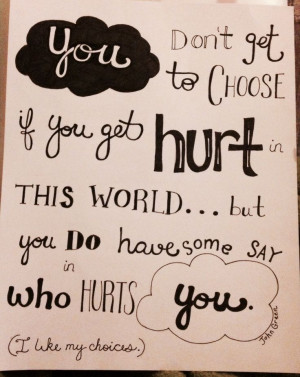 you Don't get
to CHOOSE
if you get hurt in
THIS WORLD... but
you DO have some SAY
in
who HURTS you.
John Green
(I like my choices.)